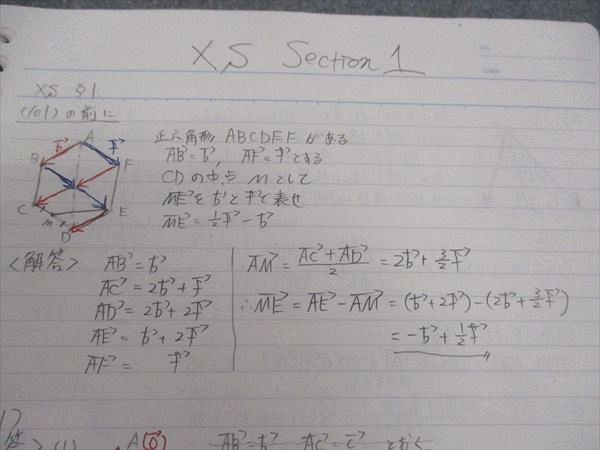 XS Section 1
No.
Date
XS §1.
<101>の前に
正六角形 ABCDEF がある
AB→=b→, AF→=f→とする
CDの中点 Mとして
ME→をb→とf→で表せ
ME→=1/2f→-b→
b→ A f→
B F
C E
M
D
<解答> AB→=b→
AC→=2b→+f→
AD→=2b→+2f→
AE→=b→+2f→
AF→= f→
AM→=(AC→+AD→)/2=2b→+3/2f→
∴ME→=AE→-AM→=(b→+2f→)-(2b→+3/2f→)
=-b→+1/2f→
答> (1) A(0→) AB→=b→ AC→=c→ とおく